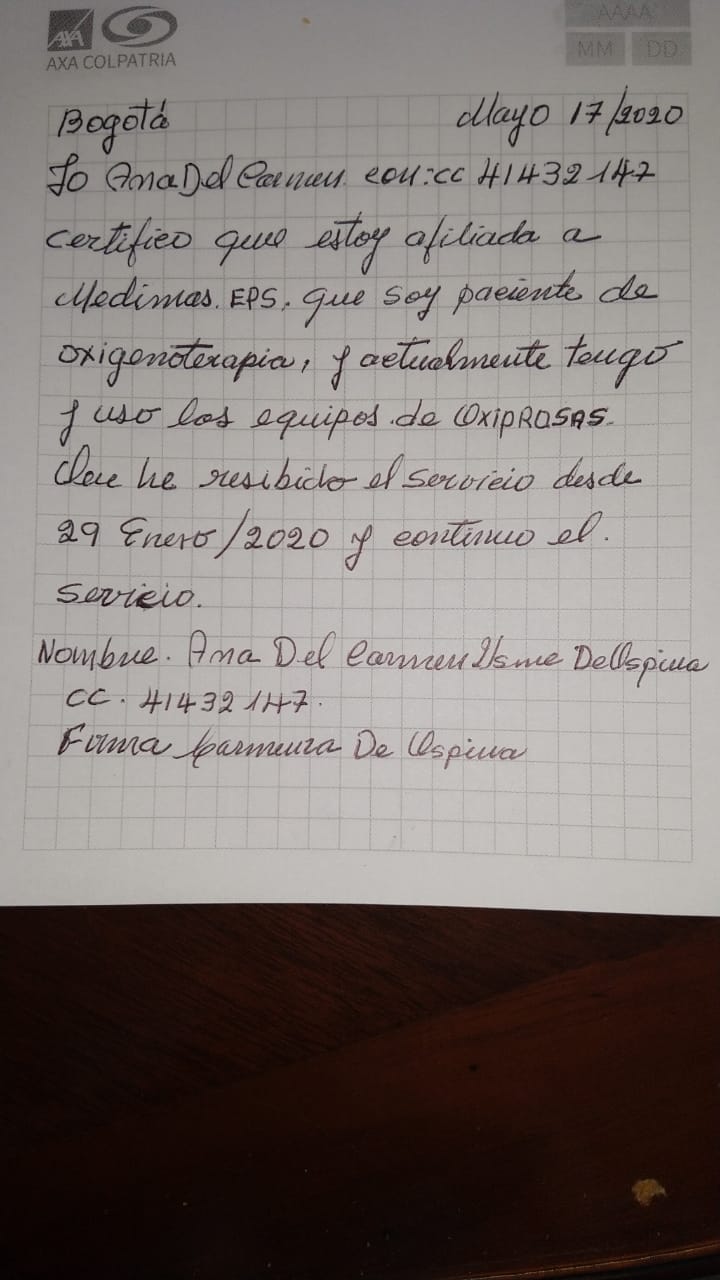 AXA
AXA COLPATRIA
AAAA
MM DD
Bogotá Mayo 17/2020
Yo Ana Del Carmen con:cc 41432147
certifico que estoy afiliada a
Medimas. EPS. que soy paciente de
oxigenoterapia, y actualmente tengo
y uso los equipos de OXIPROSAS.
Que he resibido el servicio desde
29 Enero/2020 y continuo el.
servicio.
Nombre. Ana Del Carmen Usme De Ospina
CC. 41432147.
Firma Carmenza De Ospina